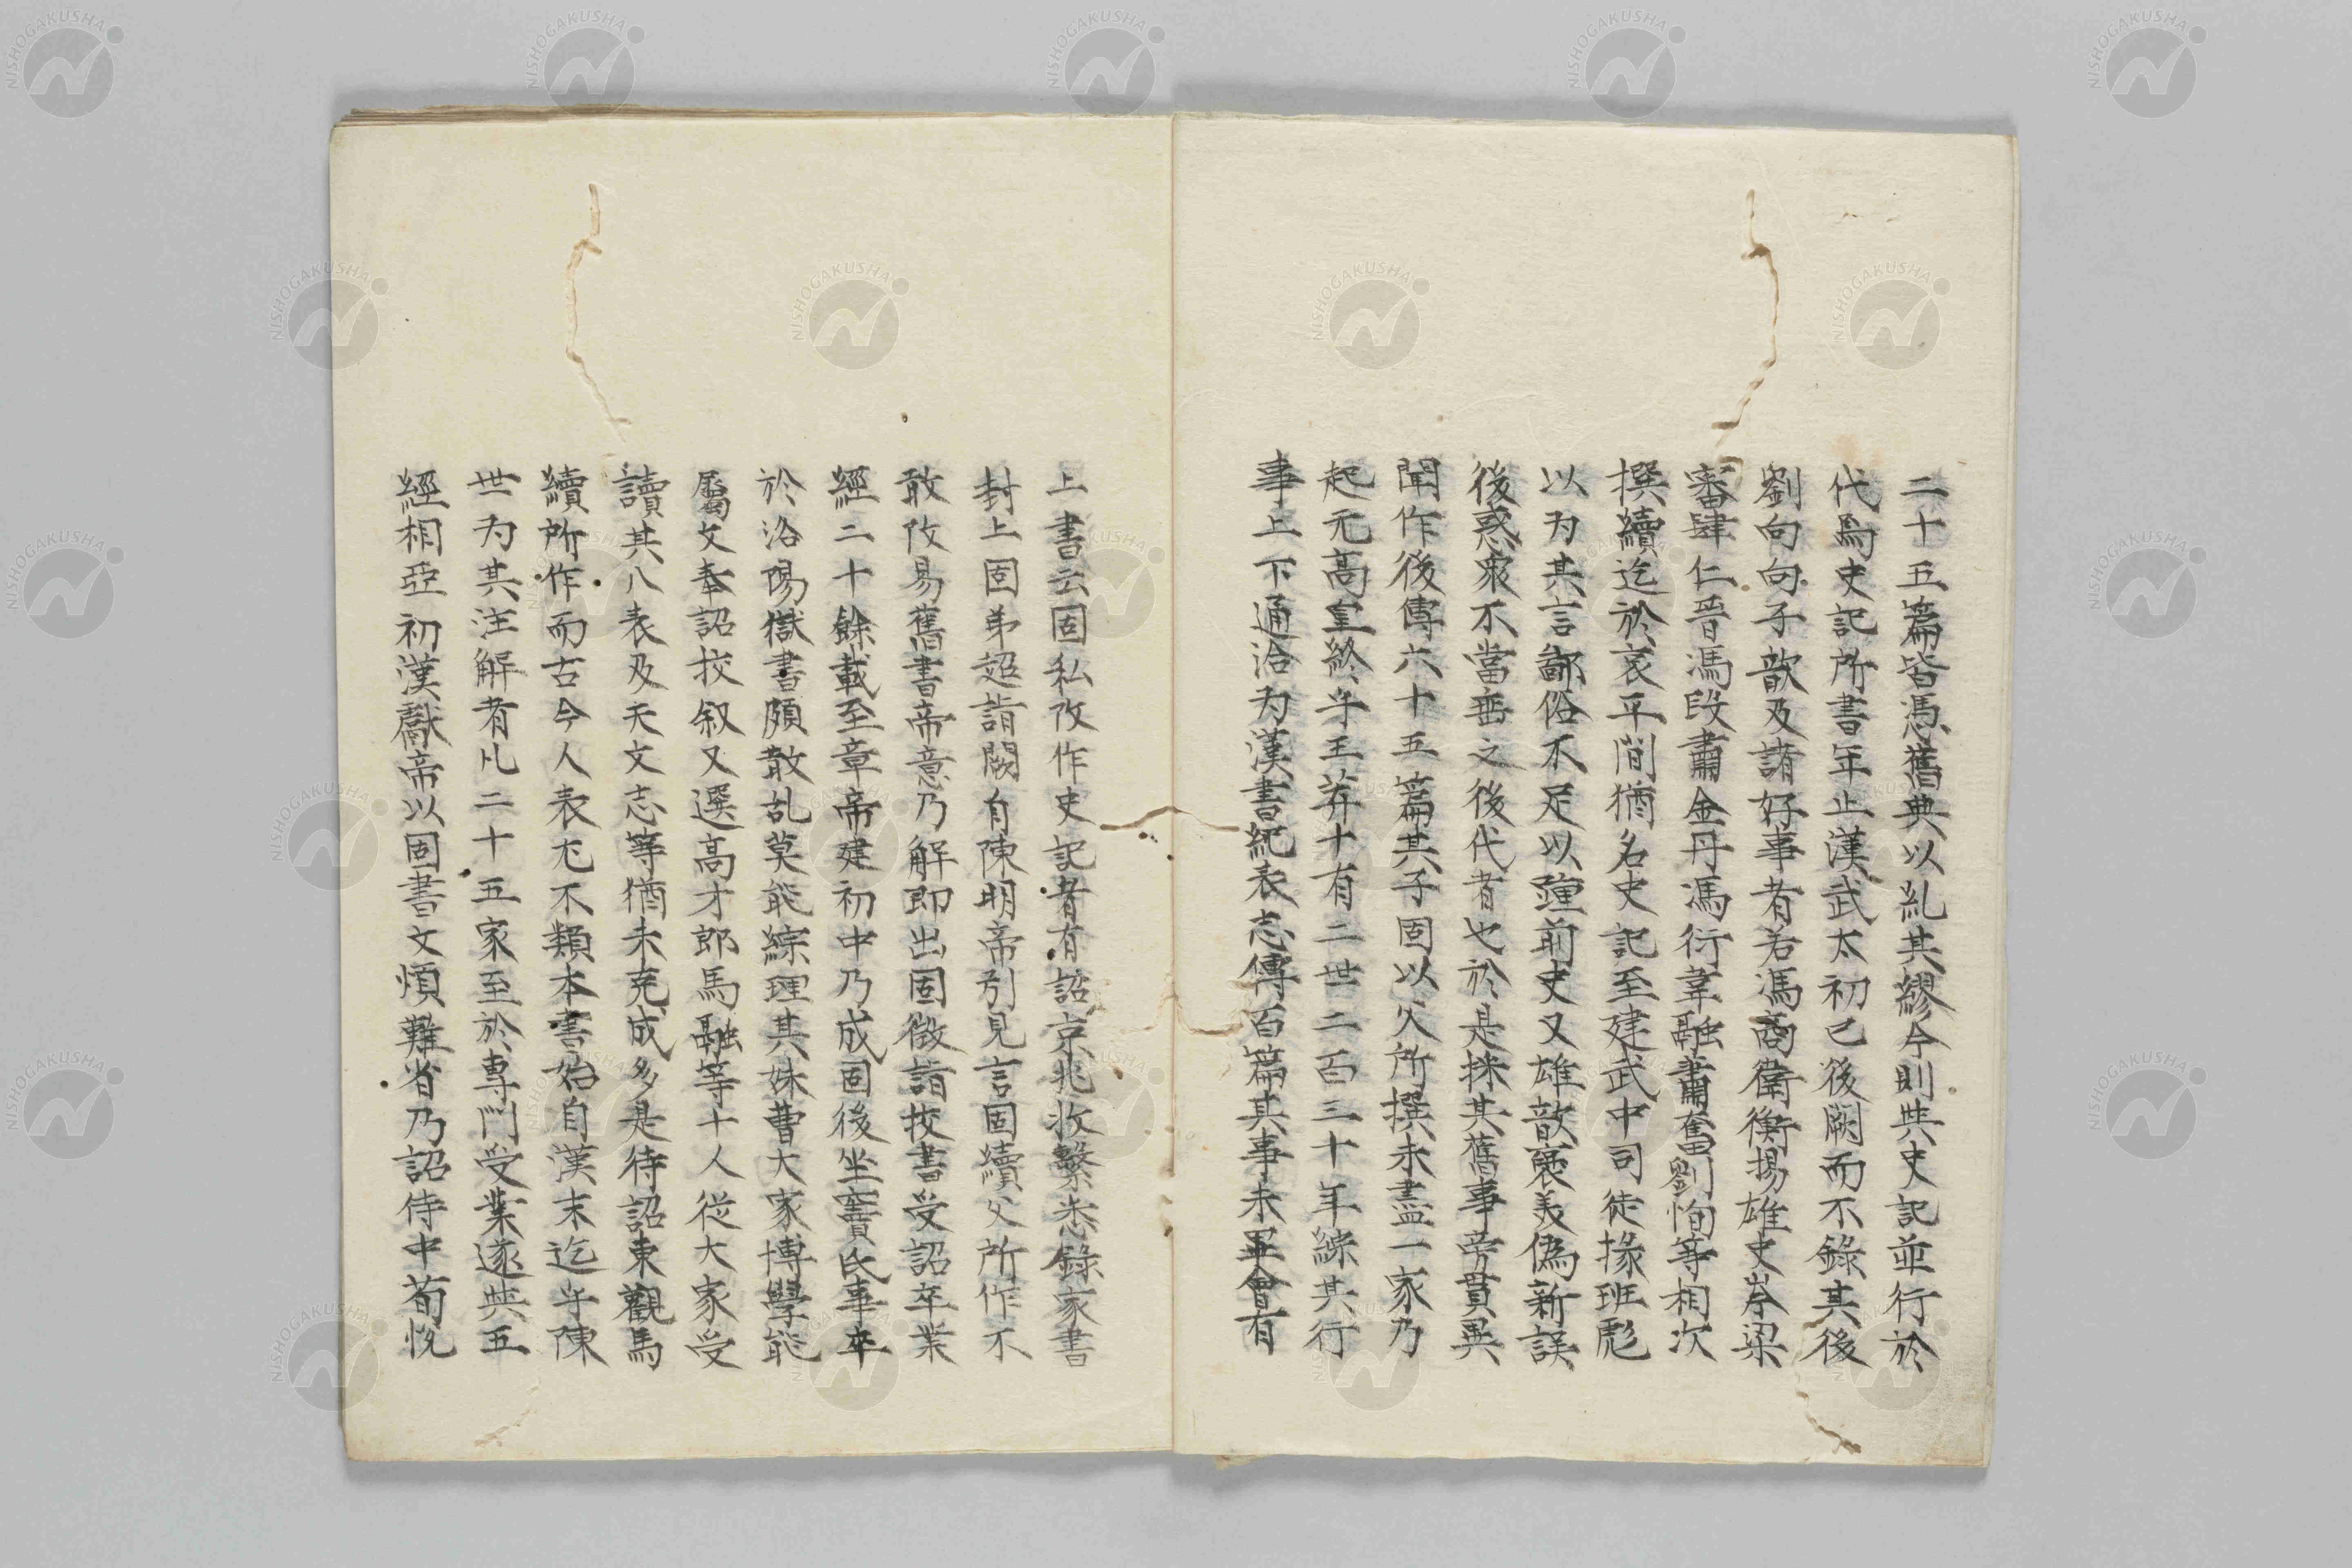 二十五篇皆憑舊典以糺其繆今則與史記並行於
代焉史記所書年止漢武太初已後闕而不錄其後
劉向向子歆及諸好事者若馮商衛衡揚雄史岑梁
審肆仁晋馮段肅金丹馮衍韋融蕭奮劉恂等相次
撰續迄於哀平間猶名史記至建武中司徒掾班彪
以为其言鄙俗不足以踵前史又雄歆褒美偽新誤
後惑衆不當垂之後代者也於是採其舊事旁貫異
聞作後傳六十五篇其子固以父所撰未盡一家乃
起元高皇終乎王莽十有二世二百三十年綜其行
事上下通洽为漢書紀表志傳百篇其事未畢會有
上書云固私改作史記者有詔京兆收繫悉錄家書
封上固弟超詣闕自陳明帝引見言固續父所作不
敢改易舊書帝意乃解即出固徴詣挍書受詔卒業
經二十餘載至章帝建初中乃成固後坐竇氏事卒
於洛陽獄書頗散乱莫能綜理其妹曹大家博學能
屬文奉詔挍叙又選高才郎馬融等十人從大家受
讀其八表及天文志等猶未克成多是待詔東觀馬
續所作而古今人表尤不類本書始自漢末迄乎陳
世为其注解者凡二十五家至於専門受業遂與五
經相亞初漢獻帝以固書文煩難省乃詔侍中荀悅
NISHOGAKUSHA